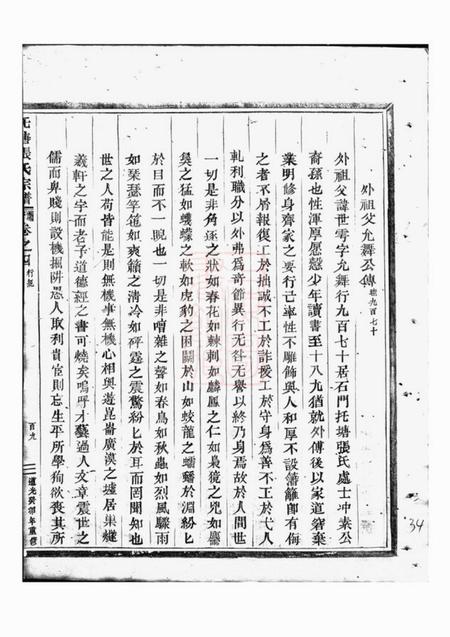 外祖父允舞公傳 總九百七十
外祖父諱世雩字允舞行九百七十居石門托塘張氏處士冲素公
裔孫也性渾厚愿慤少年讀書至十八九猶就外傅後以家道窘棄
業明修身齊家之要行己率性不雕飾與人和厚不設藩籬卽有侮
之者不屑報復工於拙諴不工於詐援工於守身爲善不工於弋人
軋利職分以外弗爲奇節異行无咎无譽以終乃身焉故於人間世
一切是非角逐之狀如春花如棘刺如麟鳳之仁如梟獍之兇如鷹
奐之猛如蠛蠓之軟如虎豹之困鬭於山如蛟龍之蟠蟠於淵紛匕
於目而不一睨也一切是非喧雜之聲如春鳥如秋蟲如烈風驟雨
如琹瑟竽遁如爽籟之清泠如砰霆之震驚紛匕於耳而罔聞知也
世之人苟皆能是則無機事無機心相與遊崑崙廣漠之墟居巢燧
羲軒之宇而老子道德經之書可燒矣嗚呼才藝過人文章震世之
儒而卑賤則設機掘阱恐人取利貴宦則忘生平所學狥欲喪其所
托塘張氏宗譜 卷之四 行誼 百九 道光癸卯年重修
34